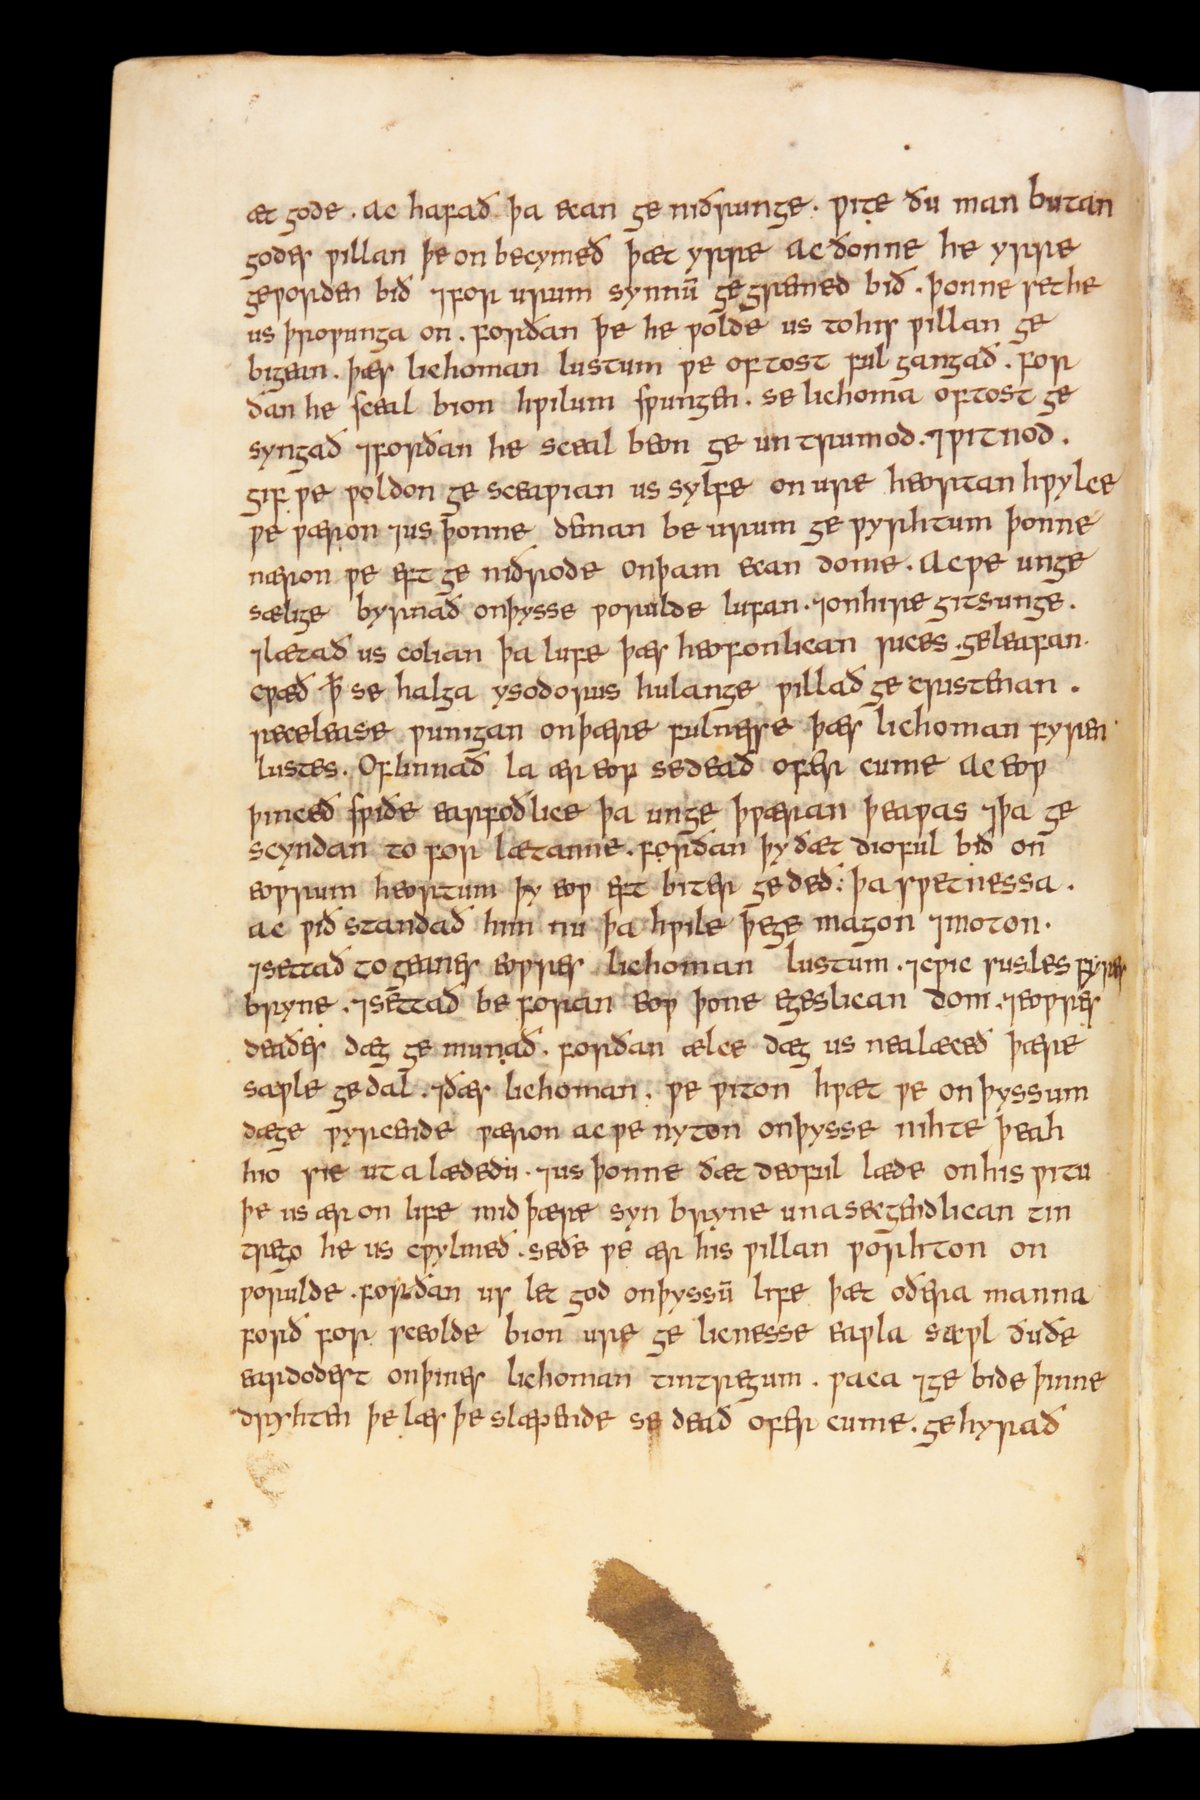 æt gode · ac hafað þa ecan ge niðrunge · ƿite ðu man butan
godes ƿillan þe on becymeð þæt yrre ac ðonne he yrre
geƿorden bið ⁊ for urum synnū ge gremed bið · þonne set he
us þroƿunga on · forðan þe he ƿolde us to his ƿillan ge
bigein · þæs lichoman lustum ƿe oftost ful gangað · for
ðan he sceal bion hƿilum sƿungen · se lichoma oftost ge
syngað ⁊ forðan he sceal beon ge un trumod · ⁊ ƿitnod ·
gif ƿe ƿoldon ge sceaƿian us sylfe on ure heortan hƿylce
ƿe ƿæron ⁊ us þonne deman be urum ge ƿyrhtum þonne
næron ƿe eft ge niðrode on þam ecan dome · Ac ƿe unge
sælige byrnað on þysse ƿorulde lufan · ⁊ on hire gitsunge ·
⁊ lætað us colian þa lufe þæs heofonlican rices · geleafan ·
cƿæð ꝥ se halga ysodorus hu lange ƿillað ge cristenan ·
recelease ƿunigan on þære fulnesse þæs lichoman fyren
lustes · Oflinnað la ær eoƿ se deað ofer cume Ac eoƿ
þinceð sƿiðe earfoðlice þa unge þƿæran þeaƿas ⁊ þa ge
scyndan to for lætanne · forðan þy ðæt dioful bið on
eoƿrum heortum þy eoƿ eft biter ge deð : þa sƿetnessa ·
ac ƿið standað him nu þa hƿile þe ge magon ⁊ moton ·
⁊ settað to geanes eoƿres lichoman lustum · ⁊ cƿic susles fyres
bryne · ⁊ settað be foran eoƿ þone egeslican dom · ⁊ eoƿres
deaðes dæg ge munað · forðan ælce dæg us nealæceð þære
saƿle ge dal · ⁊ ðæs lichoman · ƿe ƿiton hƿæt ƿe on þyssum
dæge ƿyrcende ƿæron ac ƿe nyton on þysse nihte þeah
hio sie ut a lædedu · ⁊ us þonne ðæt deoful læde on his ƿitu
þe us ær on life mid þære syn bryne un asecgendlican tin
trego he us cƿylmeð · se ðe ƿe ær his ƿillan ƿorhton on
ƿorulde · forðan us let god on þyssū life þæt oðera manna
forð for sceolde bion ure ge licnesse eaƿla sæƿl ðu ðe
eardodest on þines lichoman tintregum · ƿaca ⁊ ge bide þinne
dryhten þe læs þe slæpende se deað ofer cume · ge hyrað